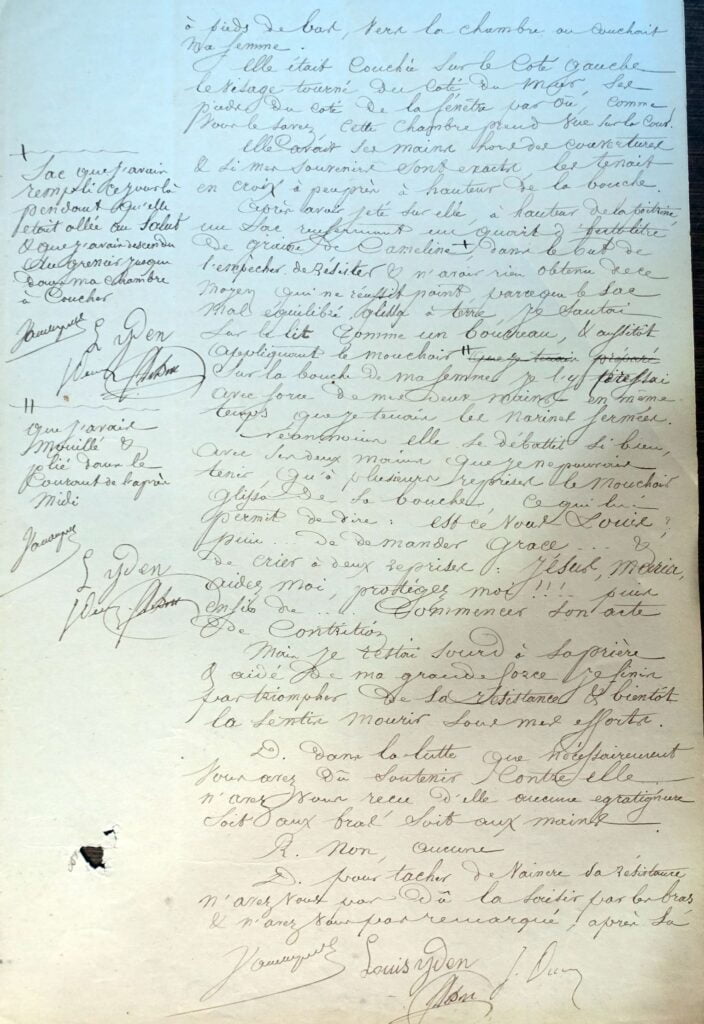 à pieds de bas, vers la chambre ou couchait
ma femme.
elle était couchée sur le coté gauche
le visage tourné du coté du mur, ses
pieds du coté de la fenêtre par où, comme
vous le savez cette chambre prend vue sur la cour.
elle avait ses mains hors des couvertures
& si mes souvenirs sont exacts, les tenait
en croix à peu près à hauteur de la bouche.
Après avoir jeté sur elle, à hauteur de la poitrine
un sac renfermant un quart d'hectolitre
de graine de Cameline +, dans le but de
l'empecher de résister & n'avoir rien obtenu de ce
moyen qui ne reussit point, parceque le sac
mal equilibré glissa à terre, je sautai
sur le lit comme un bourreau, & aussitôt
appliquant le mouchoir " que je tenais préparé
sur la bouche de ma femme je l'y pressai
avec force de mes deux mains en même
temps que je tenais les narines fermées.
néanmoins elle se débattit si bien,
avec ses deux mains que je ne pouvais
tenir, qu'à plusieurs reprises le mouchoir
glissa de sa bouche ce qui lui
permit de dire : est ce vous Louis ?
puis ... de demander grace .... &
de crier à deux reprises : Jésus, Maria,
aidez moi, protégez moi !!! puis
enfin de .... commencer son acte
de contrition
Mais je restai sourd à sa prière
& aidé de ma grande force je finis
par triompher de sa résistance & bientôt
la sentis mourir sous mes efforts.
D. dans la lutte que nécessairement
vous avez dû soutenir contre elle
n'avez vous recu d'elle aucune egratignure
soit aux bras soit aux mains
R. Non, aucune
D. pour tacher de vaincre sa résistance
n'avez vous pas dû la saisir par les bras
& n'avez vous pas remarqué, après sa
Louis yden
+
Sac que j'avais
rempli ce jour là
pendant qu'elle
etait allée au Salut
& que j'avais descendu
du grenier jusque
dans ma chambre
à coucher
L yden
"
que j'avais
mouillé &
plié dans le
courant de l'après
midi
L yden